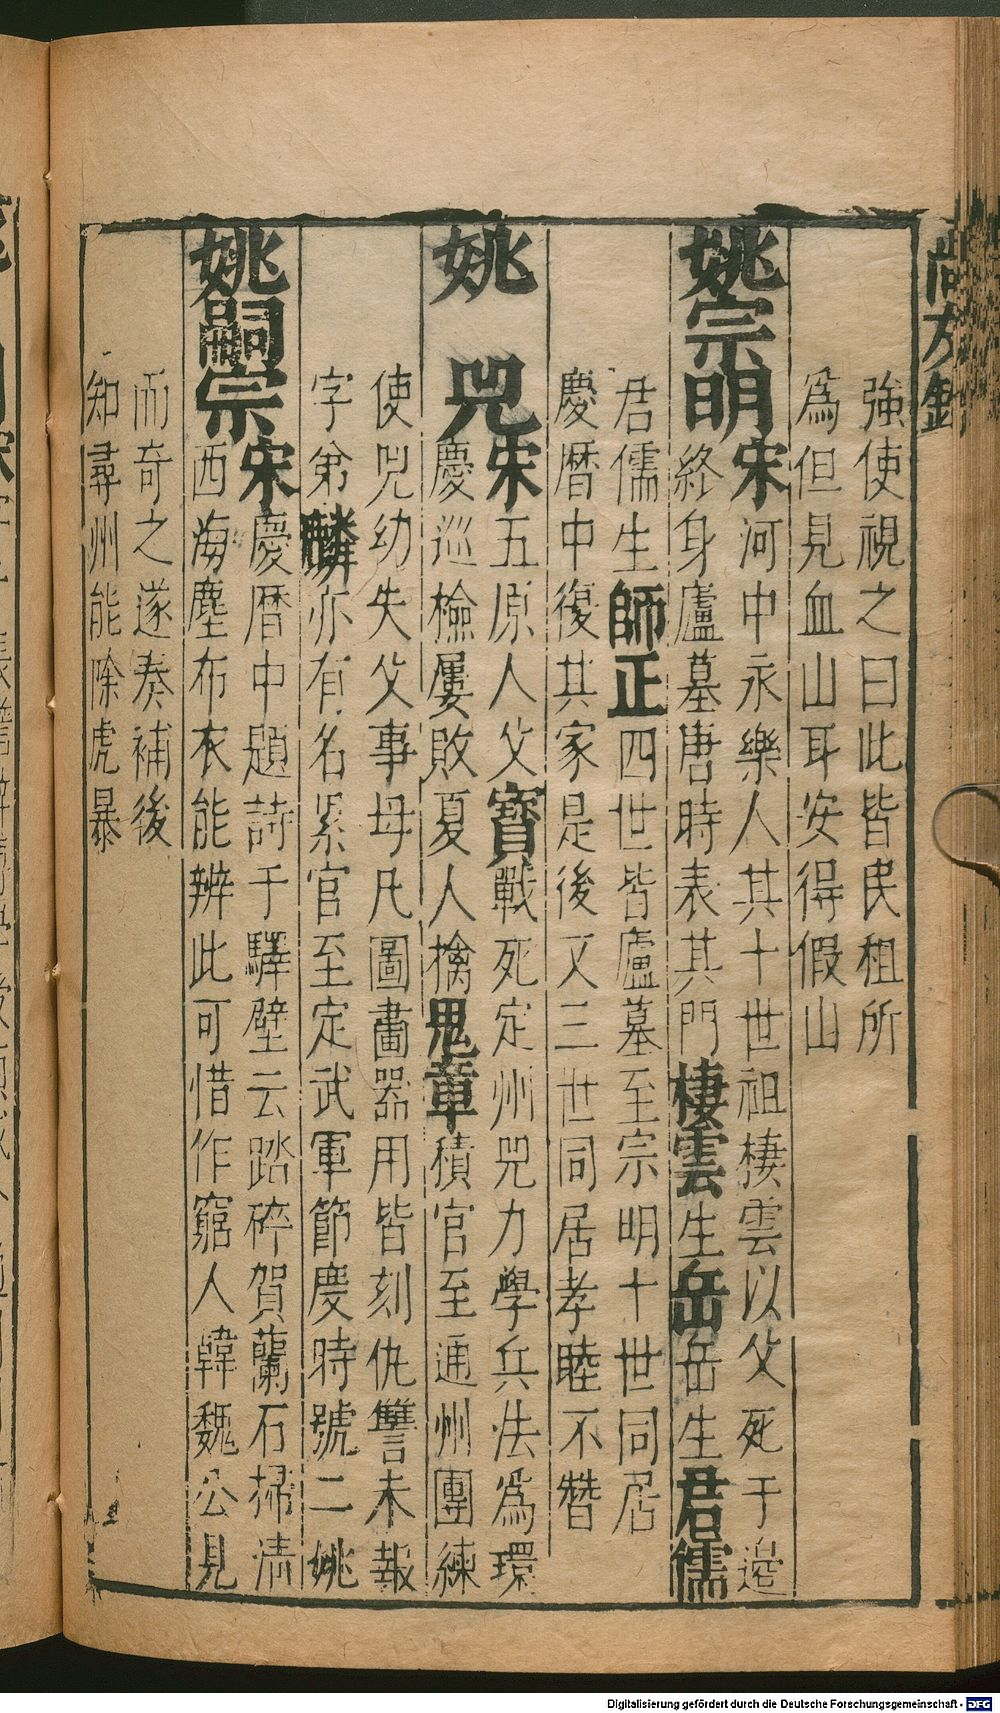 尚友錄
強使視之曰此皆民租所
爲但見血山耳安得假山
姚宗明宋河中永樂人其十世祖棲雲以父死于邉
終身廬墓唐時表其門棲雲生岳岳生君儒
君儒生師正四世皆廬墓至宗明十世同居
慶曆中復其家是後又三世同居孝睦不替
姚兕宋五原人父寶戰死定州兕力學兵法爲環
慶巡檢屢敗夏人擒鬼章積官至通州團練
使兕幼失父事母凡圖畫器用皆刻仇讐未報
字弟麟亦有名累官至定武軍節慶時號二姚
姚嗣宗宋慶曆中題詩于驛壁云踏碎賀蘭石掃清
西海塵布衣能辨此可惜作窮人韓魏公見
而奇之遂奏補後
知尋州能除虎暴
Digitalisierung gefördert durch die Deutsche Forschungsgemeinschaft - DFG